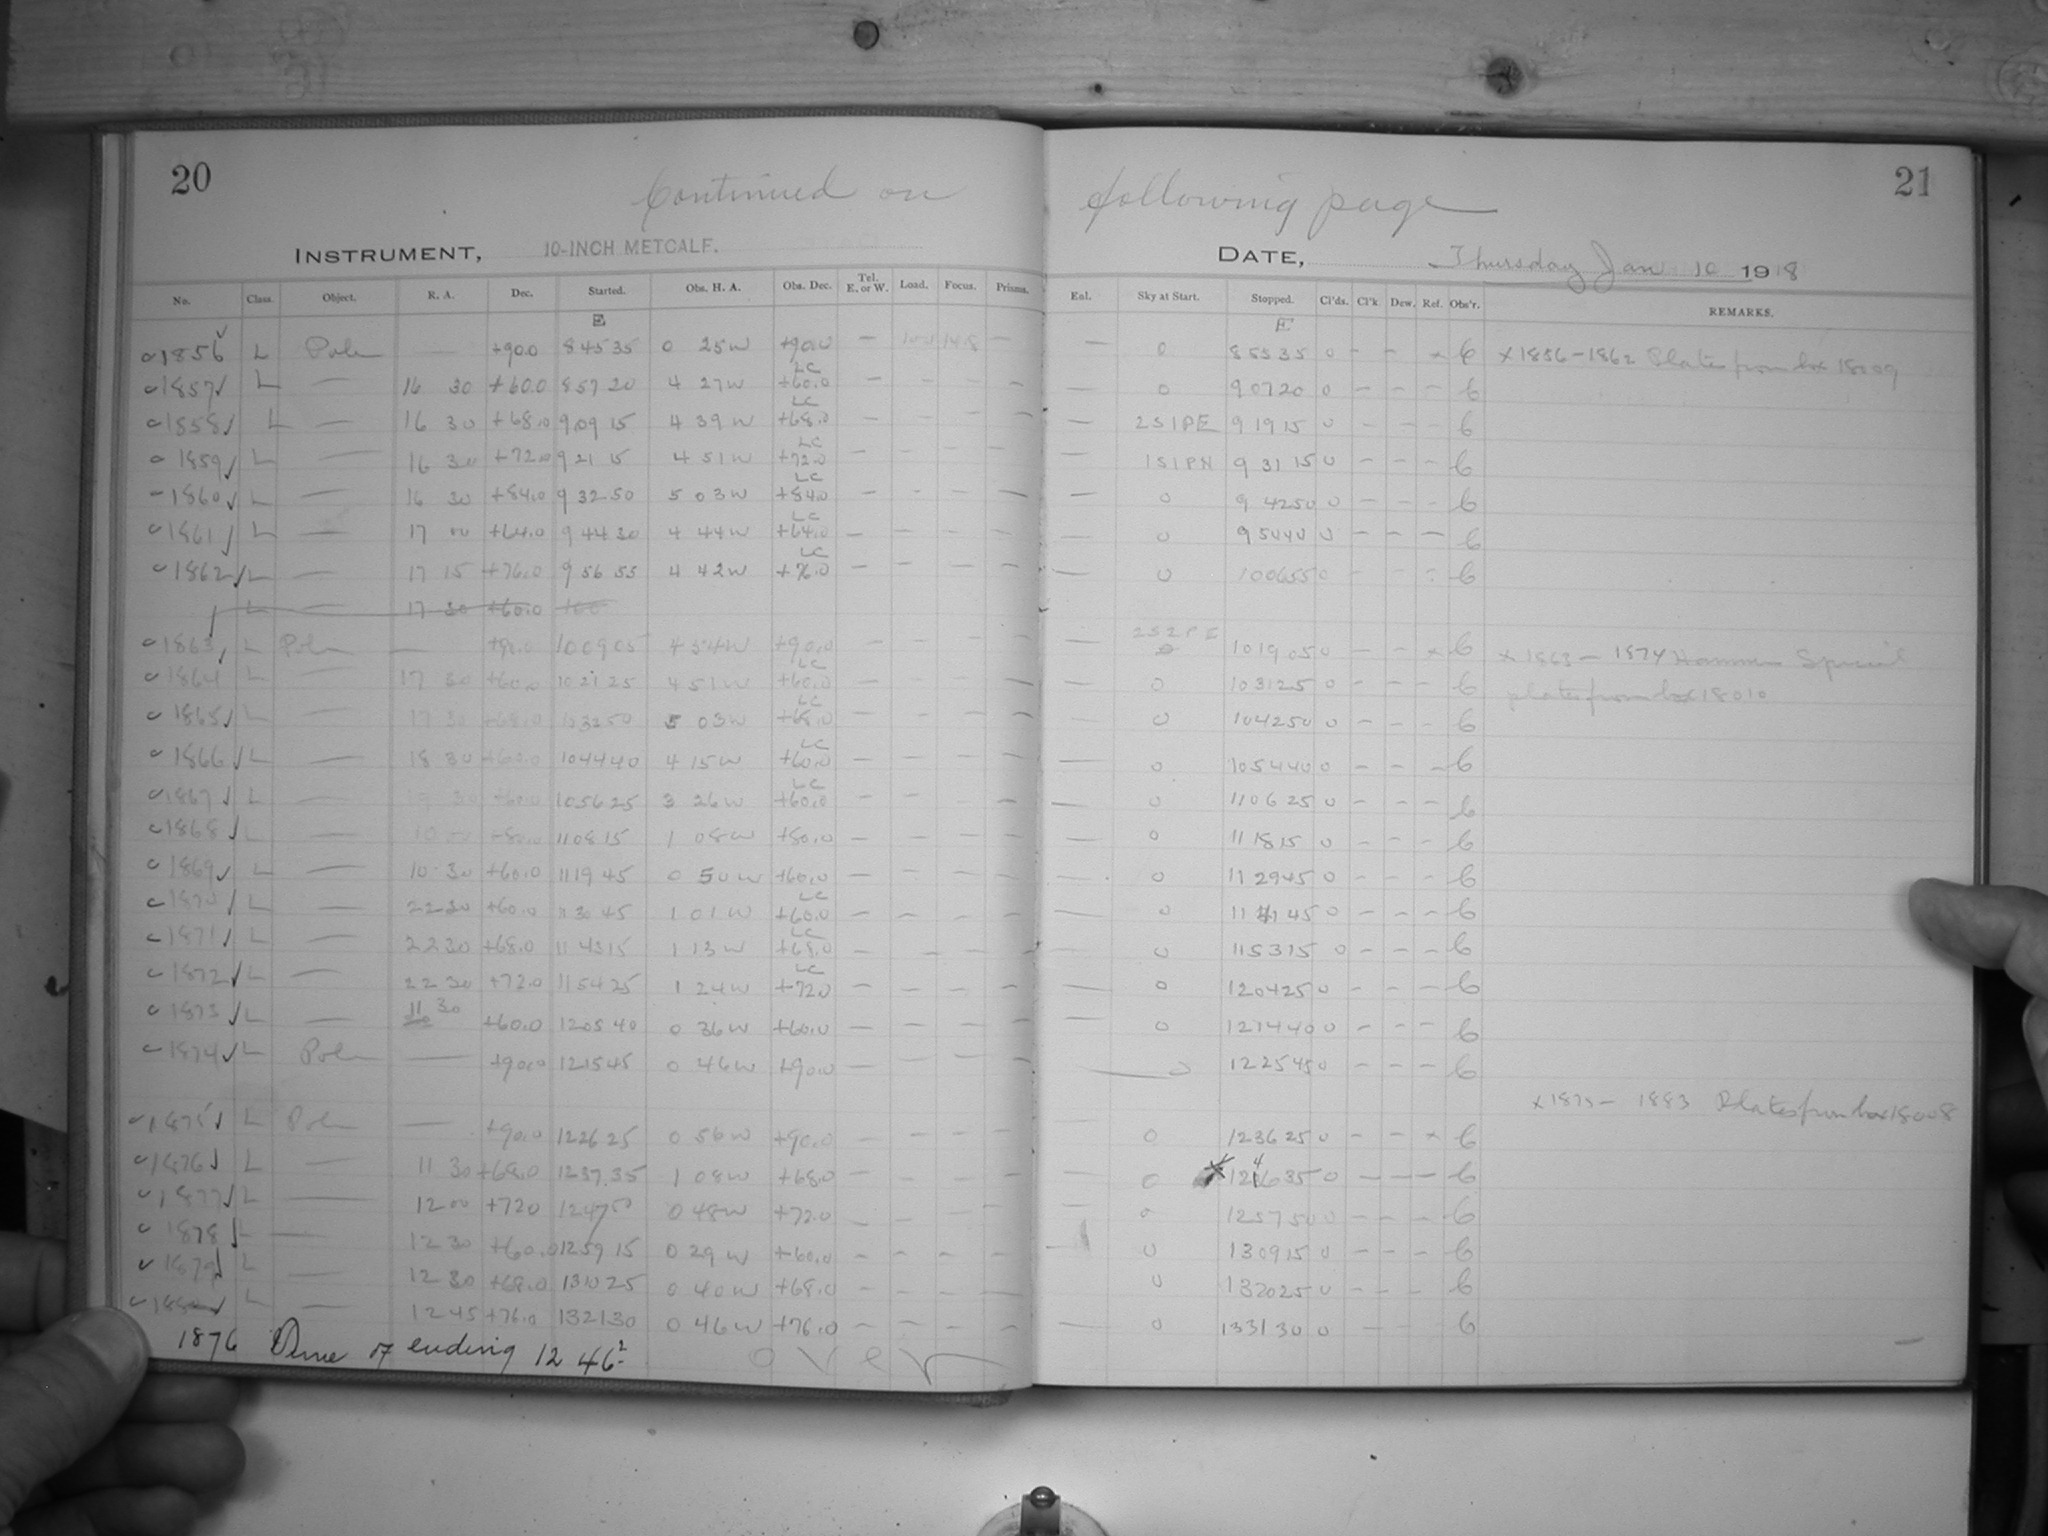 20
21
Continued on following page
INSTRUMENT, 10-INCH METCALF. DATE, Thursday Jan 10 1918
No. Class. Object. R. A. Dec. Started. Obs. H. A. Obs. Dec. Tel. E. or W. Load. Focus. Prisms. Enl. Sky at Start. Stopped. Cl'ds. Cl'k Dew. Ref. Obs'r. REMARKS.
E E
1856 L Pole — +90.0 8 45 35 0 25 W +90.0 — — — 0 8 55 35 0 - - x C x 1856-1862 Plates from box 18009
1857 L — 16 30 +60.0 8 57 20 4 27 W LC +60.0 — — — — — 0 9 07 20 0 - - - C
1858 L — 16 30 +68.0 9 09 15 4 39 W LC +68.0 — — — — — 2S1PE 9 19 15 0 - - - C
1859 L — 16 30 +72.0 9 21 15 4 51 W LC +72.0 — — — — — 1S1PN 9 31 15 0 - - - C
1860 L — 16 30 +84.0 9 32 50 5 03 W LC +84.0 — — — — — 0 9 42 50 0 - - - C
1861 L — 17 00 +64.0 9 44 30 4 44 W LC +64.0 — — — — — 0 9 50 40 0 - - - C
1862 L — 17 15 +76.0 9 56 55 4 42 W LC +76.0 — — — — — 0 10 06 55 0 - - - C
L — 17 30 +60.0 100
1863 L Pole — +90.0 10 09 05 4 54 W +90.0 — — — — — 2S2PE 10 19 05 0 - - x C x 1863-1874 Hammer Special
1864 L — 17 30 +60.0 10 21 25 4 51 W LC +60.0 — — — — — 0 10 31 25 0 - - - C plates from box 18010
1865 L — 17 30 +68.0 10 32 50 5 03 W LC +68.0 — — — — — 0 10 42 50 0 - - - C
1866 L — 18 30 +60.0 10 44 40 4 15 W LC +60.0 — — — — — 0 10 54 40 0 - - - C
1867 L — 19 30 +60.0 10 56 25 3 26 W LC +60.0 — — — — — 0 11 06 25 0 - - - C
1868 L — 10 00 +80.0 11 08 15 1 08 W +80.0 — — — — — 0 11 18 15 0 - - - C
1869 L — 10 30 +60.0 11 19 45 0 50 W +60.0 — — — — — 0 11 29 45 0 - - - C
1870 L — 22 30 +60.0 11 30 45 1 01 W LC +60.0 — — — — — 0 11 41 45 0 - - - C
1871 L — 22 30 +68.0 11 43 15 1 13 W LC +68.0 — — — — — 0 11 53 15 0 - - - C
1872 L — 22 30 +72.0 11 54 25 1 24 W LC +72.0 — — — — — 0 12 04 25 0 - - - C
1873 L — 11 30 +60.0 12 05 40 0 36 W +60.0 — — — — — 0 12 14 40 0 - - - C
1874 L Pole — +90.0 12 15 45 0 46 W +90.0 — — — — — 0 12 25 45 0 - - - C
x 1875 - 1883 Plates from box 18008
1875 L Pole — +90.0 12 26 25 0 56 W +90.0 — — — — — 0 12 36 25 0 - - x C
1876 L — 11 30 +68.0 12 37 35 1 08 W +68.0 — — — — — 0 x 12 46 35 0 - - - C
1877 L — 12 00 +72.0 12 47 50 0 48 W +72.0 — — — — — 0 12 57 50 0 - - - C
1878 L — 12 30 +60.0 12 59 15 0 29 W +60.0 — — — — — 0 13 09 15 0 - - - C
1879 L — 12 30 +68.0 13 10 25 0 40 W +68.0 — — — — 0 13 20 25 0 - - - C
1880 L — 12 45 +76.0 13 21 30 0 46 W +76.0 — — — — — 0 13 31 30 0 - - C
1876 Time of ending 12 46 over